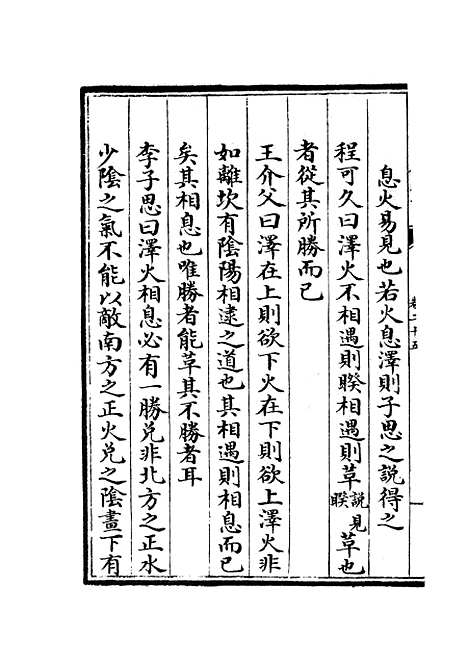 息火易見也若火息澤則子思之說得之
程可久曰澤火不相遇則睽相遇則革說見睽革也
者從其所勝而已
王介父曰澤在上則欲下火在下則欲上澤火非
如離坎有陰陽相逮之道也其相遇則相息而已
矣其相息也唯勝者能革其不勝者耳
李子思曰澤火相息必有一勝兌非北方之正水
少陰之氣不能以敵南方之正火兌之陰畫下有
卷二十五